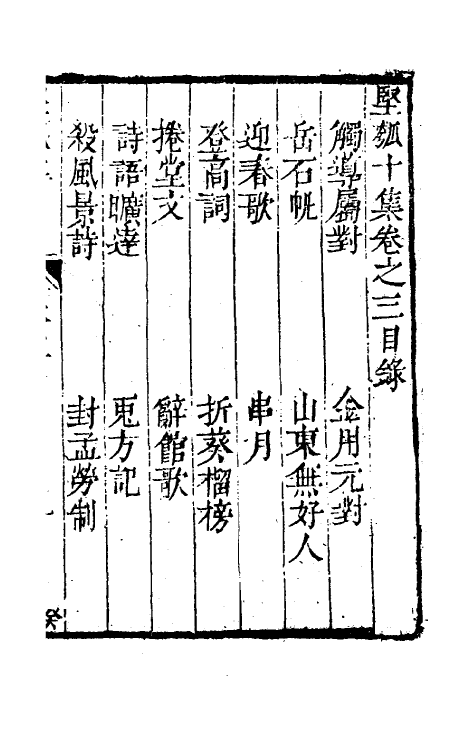 堅瓠十集卷之三目錄
觸導屬對　金用元對
岳石帆　山東無好人
迎春歌　串月
登高詞　折葵榴榜
捲堂文　辭館歌
詩語曠達　兎方記
殺風景詩　封孟勞制